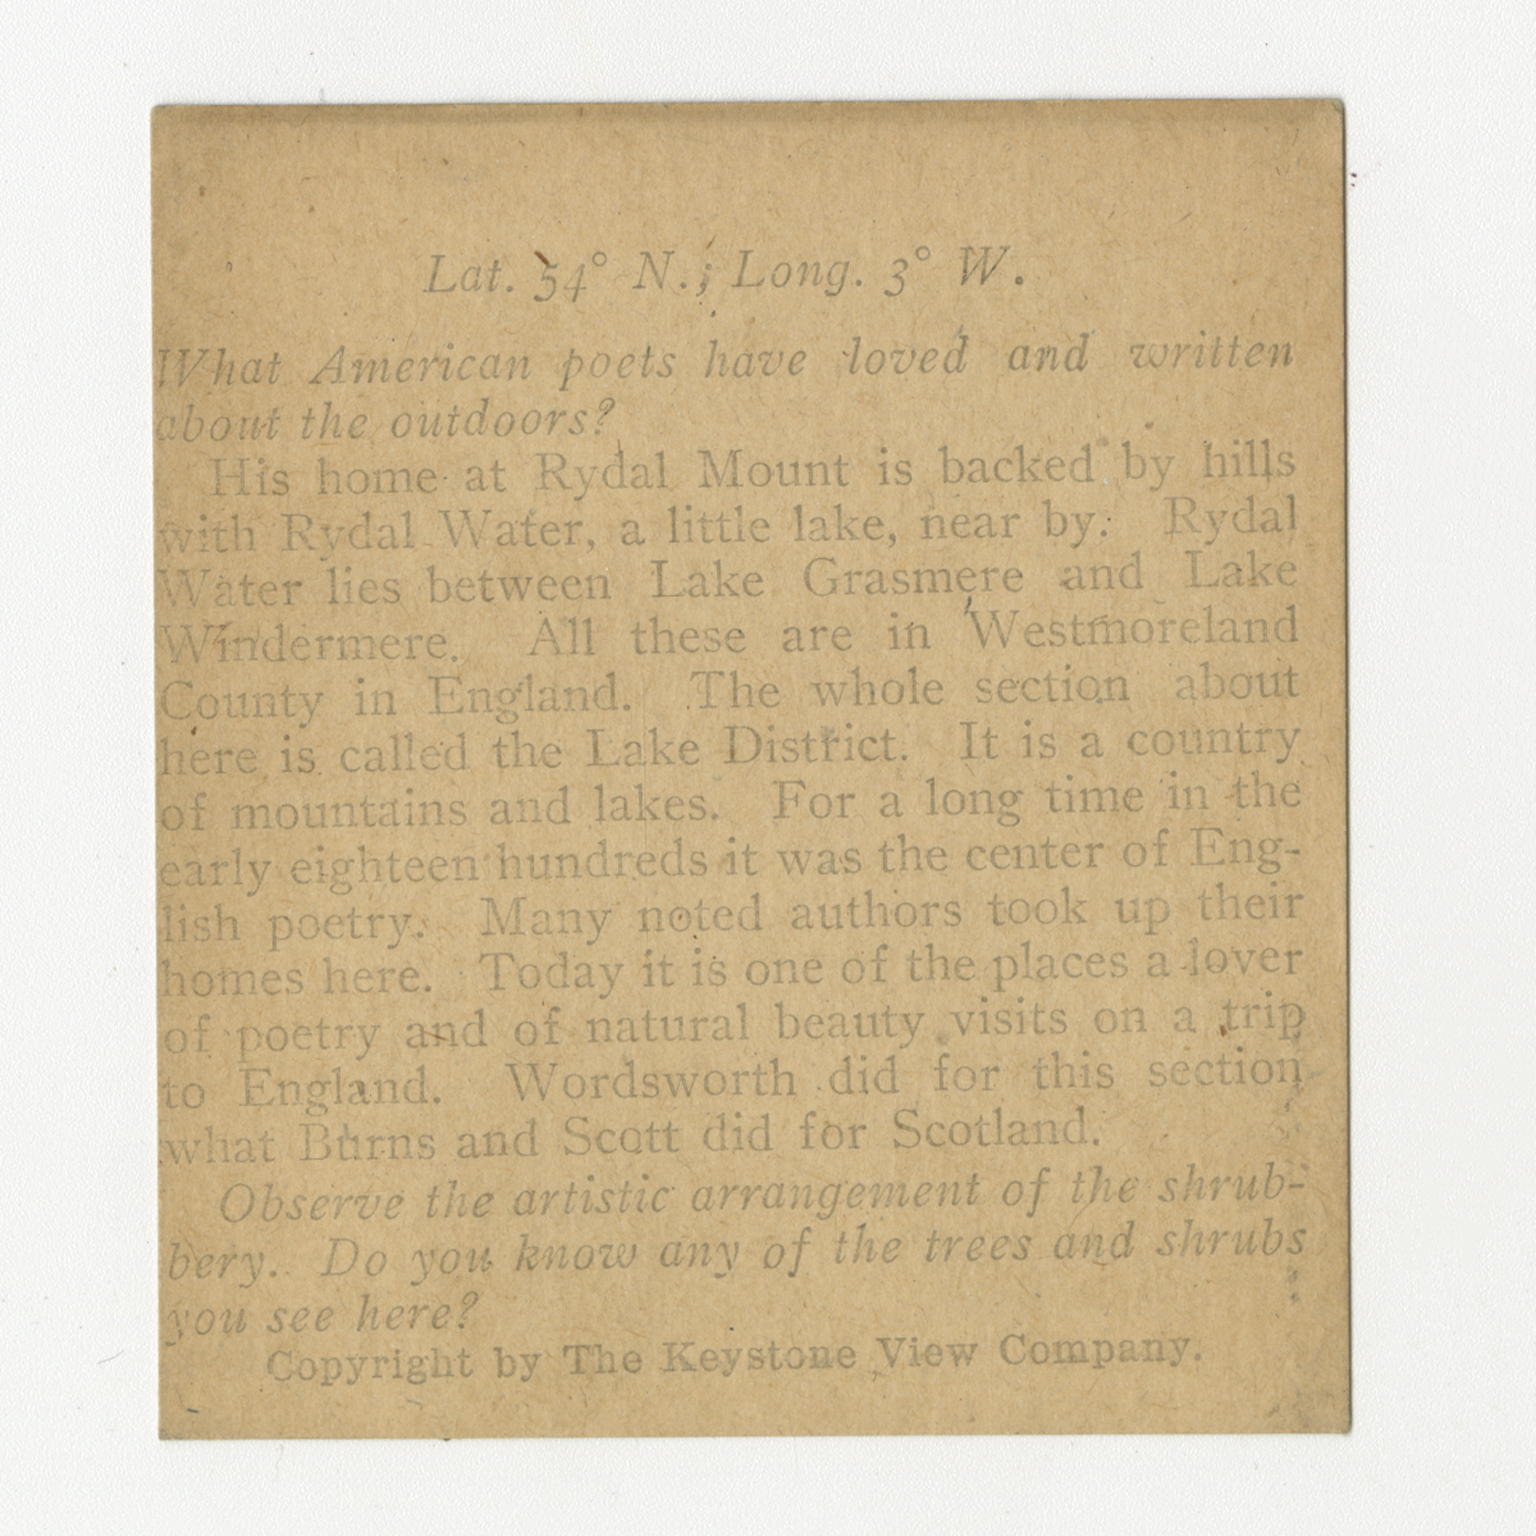 Lat. 54° N.; Long. 3° W.
What American poets have loved and written
about the outdoors?
His home at Rydal Mount is backed by hills
with Rydal Water, a little lake, near by. Rydal
Water lies between Lake Grasmere and Lake
Windermere. All these are in Westmoreland
County in England. The whole section about
here is called the Lake District. It is a country
of mountains and lakes. For a long time in the
early eighteen hundreds it was the center of Eng-
lish poetry. Many noted authors took up their
homes here. Today it is one of the places a lover
of poetry and of natural beauty visits on a trip
to England. Wordsworth did for this section
what Burns and Scott did for Scotland.
Observe the artistic arrangement of the shrub-
bery. Do you know any of the trees and shrubs
you see here?
Copyright by The Keystone View Company.